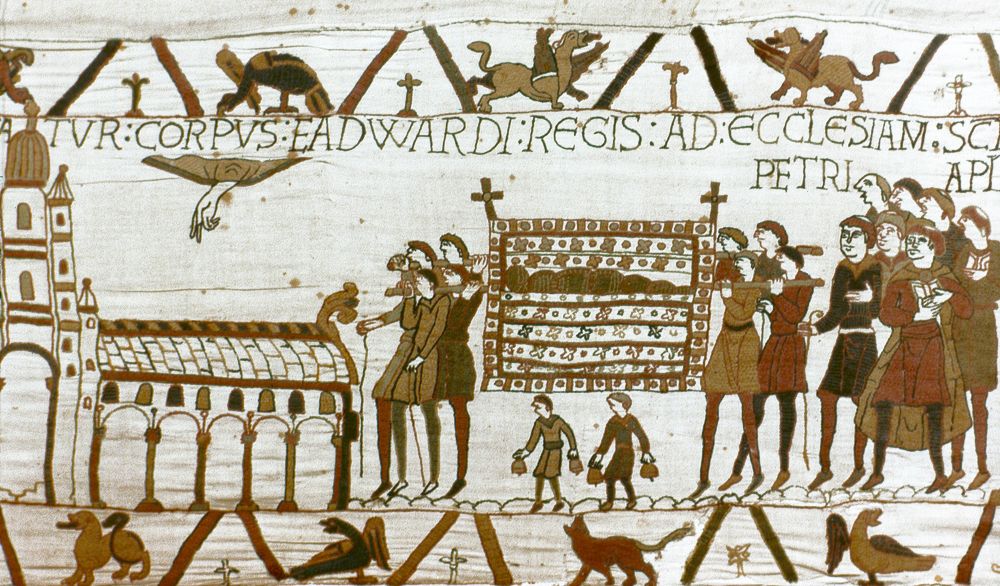 ATVR : CORPVS : EADWARDI : REGIS : AD : ECCLESIAM : SCI
PETRI APL